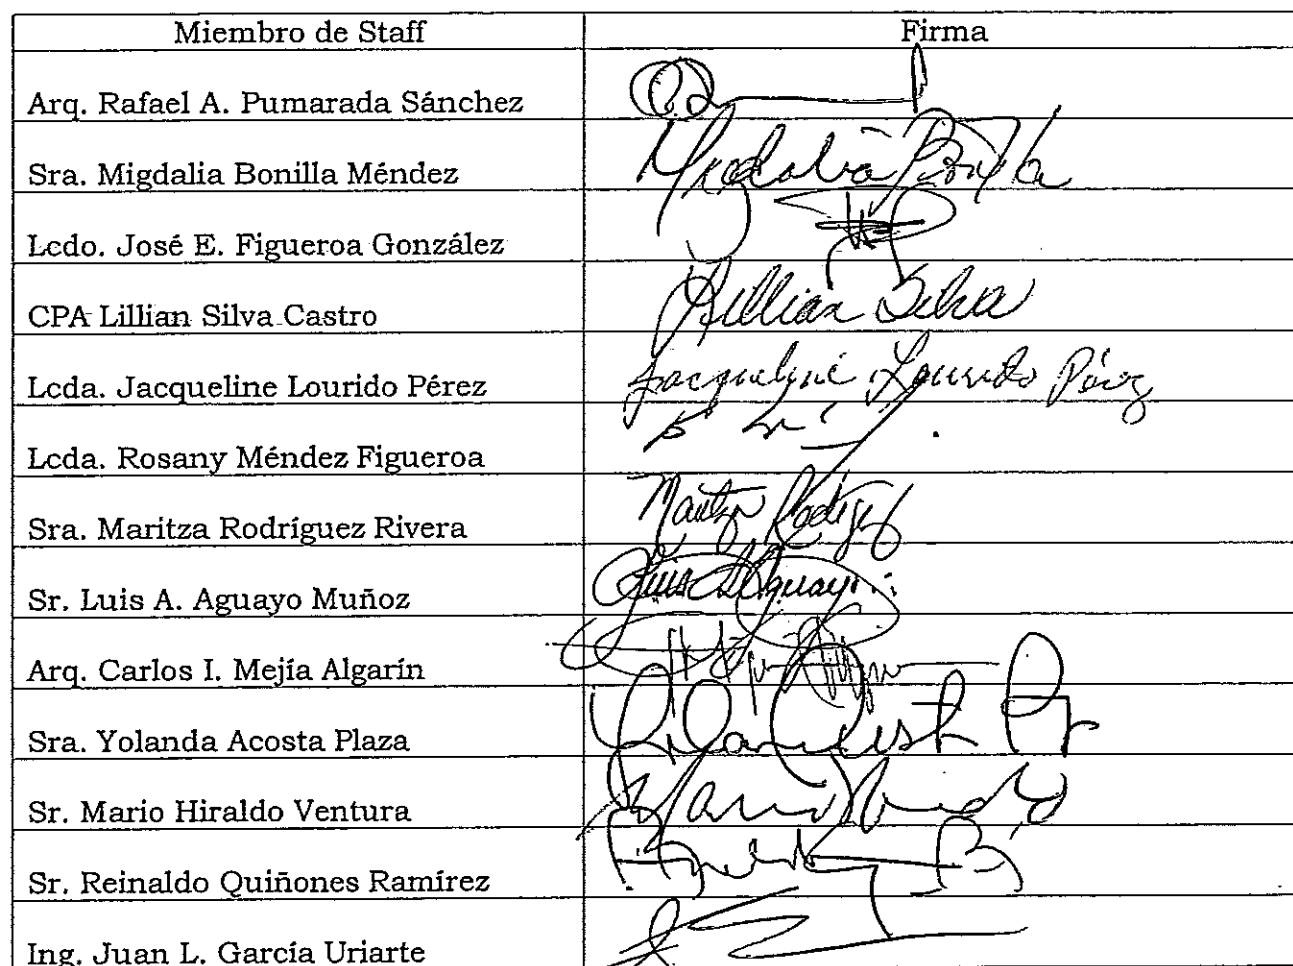 Miembro de Staff Firma
Arq. Rafael A. Pumarada Sánchez
Sra. Migdalia Bonilla Méndez Migdalia Bonilla
Lcdo. José E. Figueroa González
CPA Lillian Silva Castro Lillian Silva
Lcda. Jacqueline Lourido Pérez Jacqueline Lourido Pérez
Lcda. Rosany Méndez Figueroa
Sra. Maritza Rodríguez Rivera Maritza Rodríguez
Sr. Luis A. Aguayo Muñoz Luis A Aguayo
Arq. Carlos I. Mejía Algarín
Sra. Yolanda Acosta Plaza
Sr. Mario Hiraldo Ventura Mario Hiraldo
Sr. Reinaldo Quiñones Ramírez
Ing. Juan L. García Uriarte